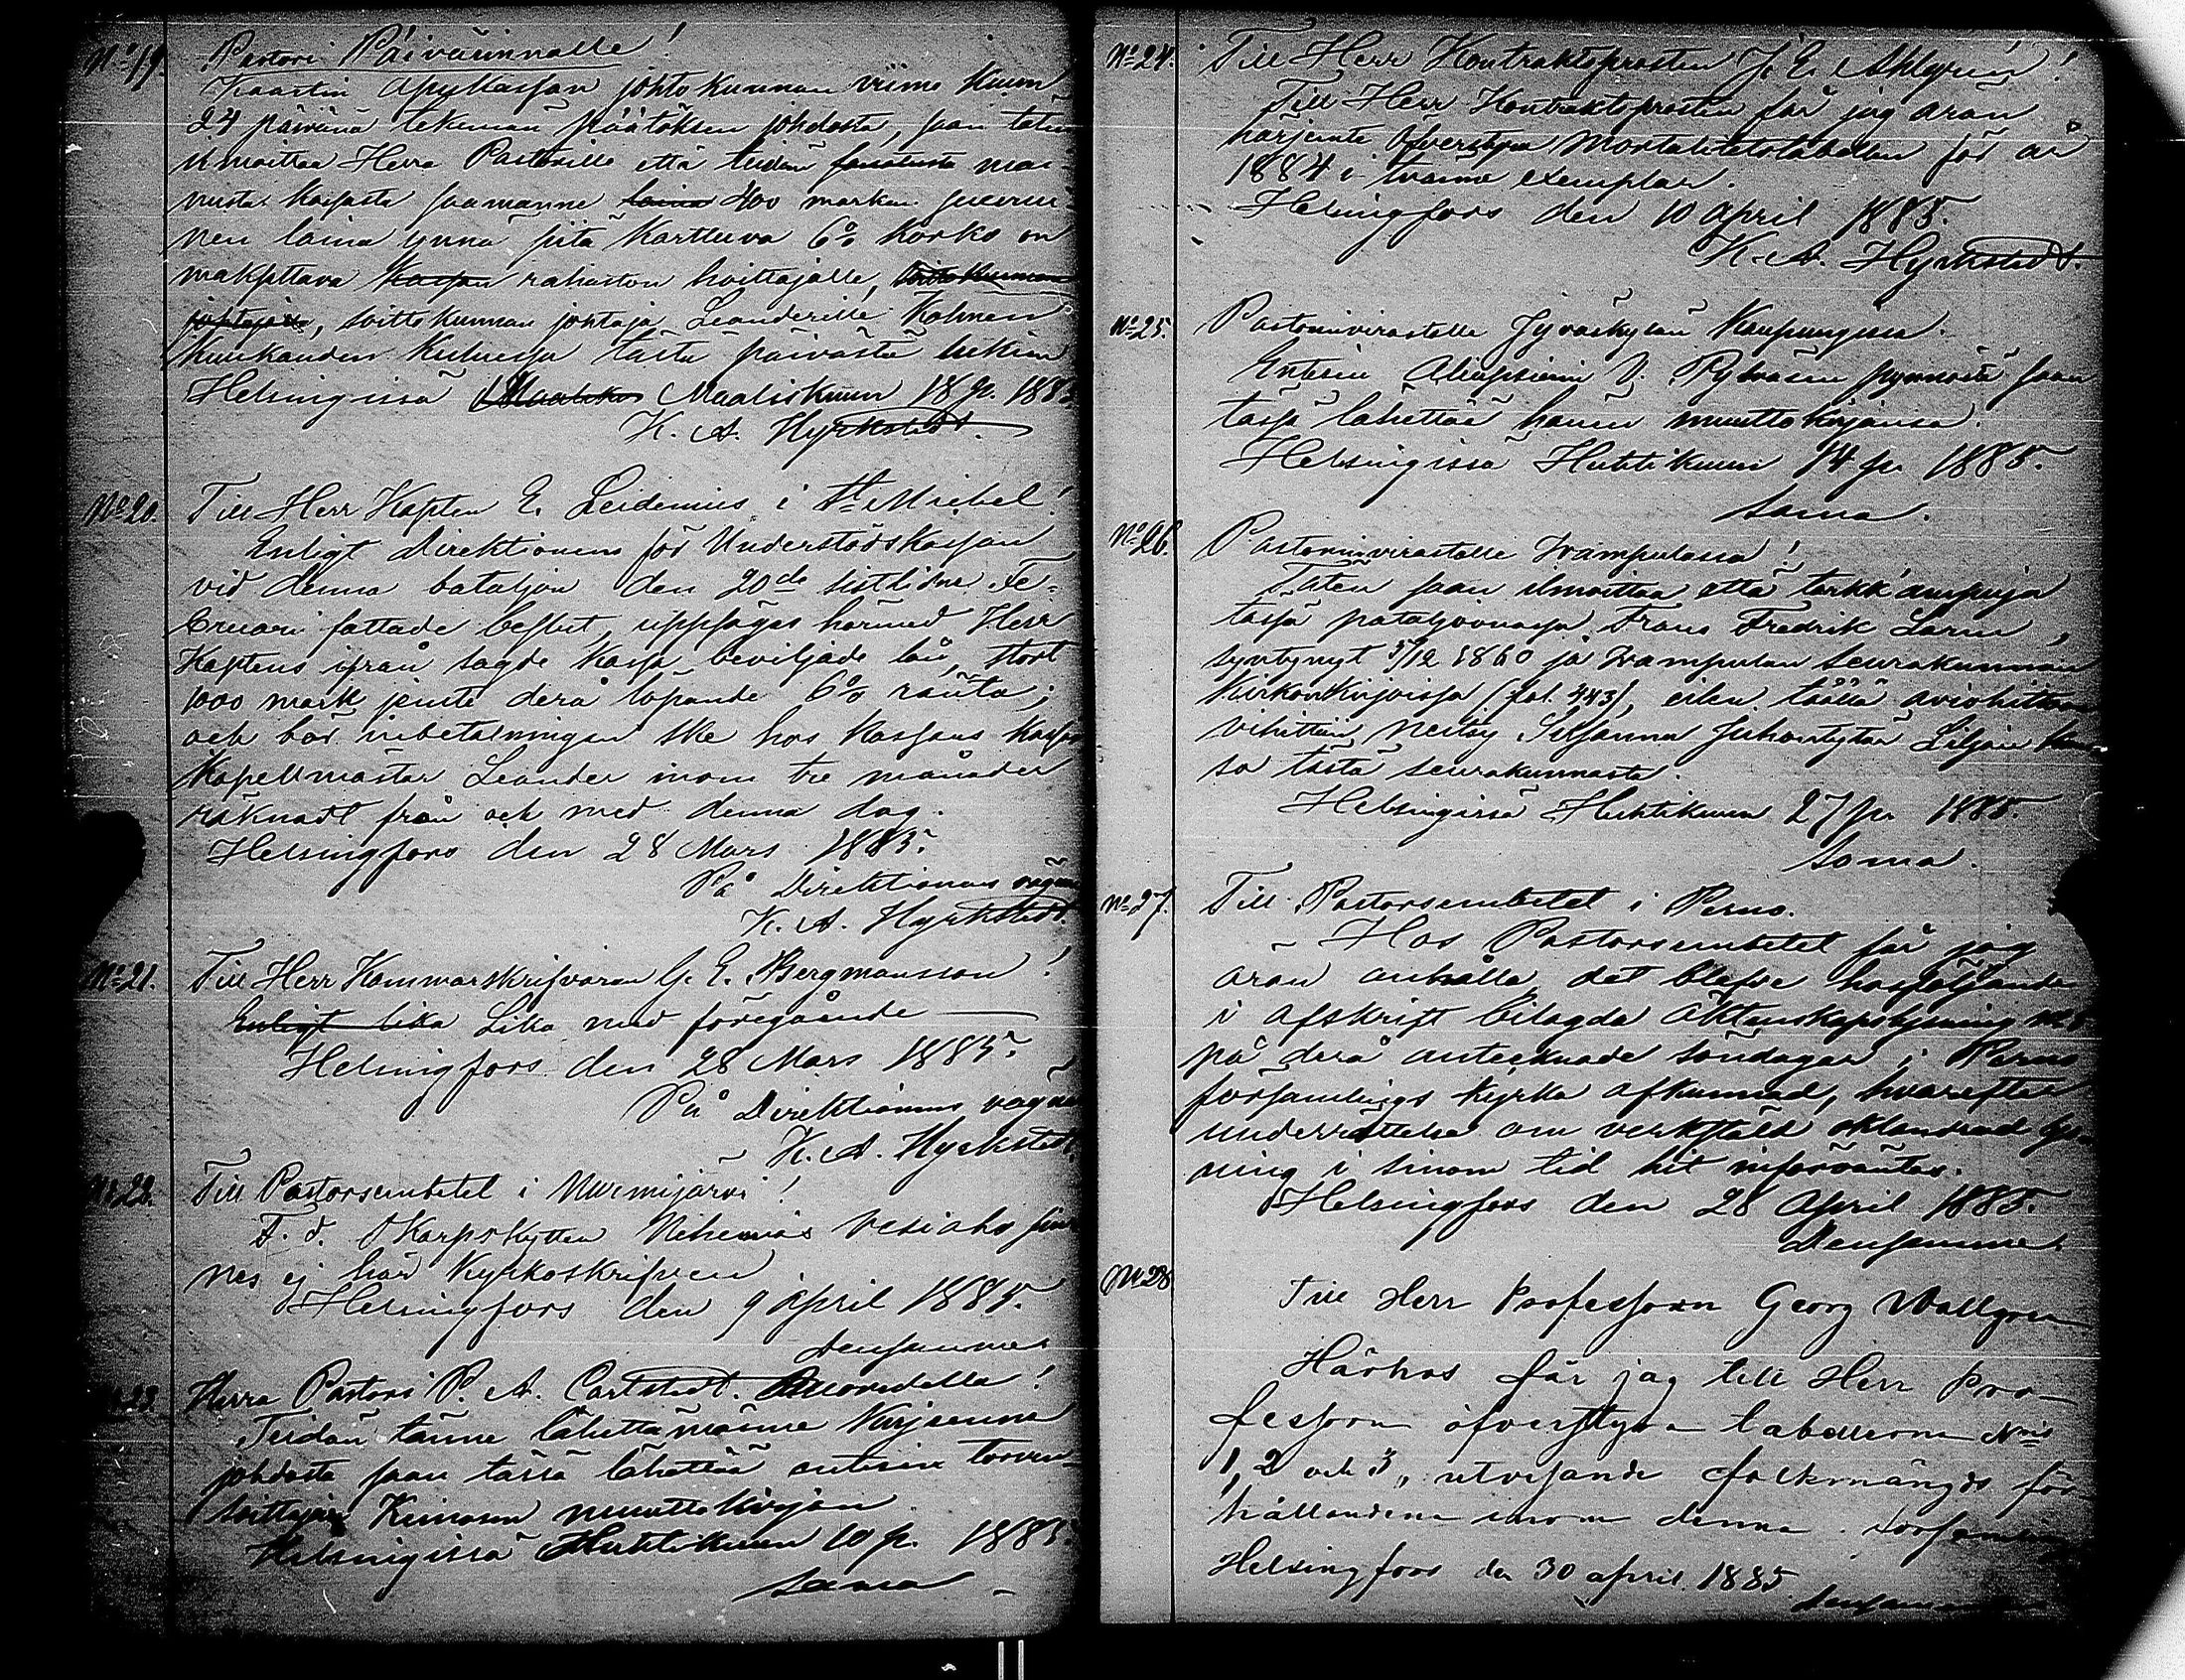 No 19. Pastori Päivärinnalle!
Kaartin Apukassan johtokunnan viime kuun
24 päivänä tekemän päätöksen johdosta, saan täten
ilmoittaa Herra Pastorille että teidän mai
nitusta kassasta saamanne laina 400 markan suurui
nen laina ynnä siitä karttuva 6% korko on
maksettava kassan rahaston hoittajalle,
soittokunnan johtaja Leanderille kolmen
kuukauden kuluessa tästä päivästä lukien
Helsingissä Maaliskuun 18 p. 1885
K. A. Hyrkstedt.
No 20. Till Herr Kapten E. Leidenius i St Michel!
Enligt Direktionens för Understödskassan
vid denna bataljon den 20de sistlidne Fe-
bruari fattade beslut, uppsäges härmed Herr
Kaptens ifrån sagde kassa beviljade lån, stort
1000 mark jemte derå löpande 6% ränta;
och bör inbetalningen ske hos kassans
Kapellmästar Leander inom tre månader
räknadt från och med denna dag.
Helsingfors den 28 Mars 1885.
På Direktionens vägnar
K. A. Hyrkstedt.
No 21. Till Herr Kammarskrifvaren G. E. Bergmansson!
Enligt lika Lika med föregående
Helsingfors den 28 Mars 1885.
På Direktionens vägnar
K. A. Hyrkstedt.
No 22. Till Pastorsembetet i Nurmijärvi!
F. d. Skarpskytten Nehemias Vesiaho fin
nes ej här kyrkoskrifven
Helsingfors den 9 April 1885.
Densamme
No 23. Herra Pastori P. A. Carlstedt.
Teidän tänne lähettämänne kirjeenne
johdosta saan tässä lähettää entisen torven-
soittajan Keinosen muuttokirjan
Helsingissä Huhtikuun 10 p. 1885.
Sama
No 24. Till Herr Kontraktsprosten J. E. Ahlgren!
Till Herr Kontraktsprosten får jag äran
härjemte öfverstyra Mortalitetstabellen för år
1884 i tvänne exemplar.
Helsingfors den 10 April 1885.
K. A. Hyrkstedt.
No 25. Pastorinvirastolle Jyväskylän Kaupungissa.
Entisen Aliupsierin J. Pylväsen pyynnöstä saan
tässä lähettää hänen muuttokirjansa.
Helsingissä Huhtikuun 14 p. 1885.
Sama.
No 26. Pastorinvirastolle Wampulassa!
Täten saan ilmoittaa että tarkk'ampuja
tässä pataljoonassa Frans Fredrik Larin,
syntynyt 5/12 1860 ja Wampulan seurakunnan
kirkonkirjoissa (fol. 443), eilen täällä avioliittoon
vihittiin neitsy Susanna Juhontytär Liljan kans-
sa tästä seurakunnasta.
Helsingissä Huhtikuun 27 p. 1885.
Sama.
No 27. Till Pastorsembetet i Perno.
Hos Pastorsembetet får jag
äran anhålla det blefve hosföljande
i afskrift bilagda äktenskapslysning
på derå antecknade söndagar i Perno
församlings kyrka afkunnad, hvarefter
underrättelse om verkställd oklandrad lys
ning i sinom tid hit införväntas.
Helsingfors den 28 April 1885.
Densamme.
No 28 Till Herr Professorn Georg Wallgren
Härhos får jag till Herr Pro-
fessorn öfverstyra tabellerne Nris
1, 2 och 3, utvisande folkmängds för
hållandena inom denna församling
Helsingfors den 30 april 1885
Densamme